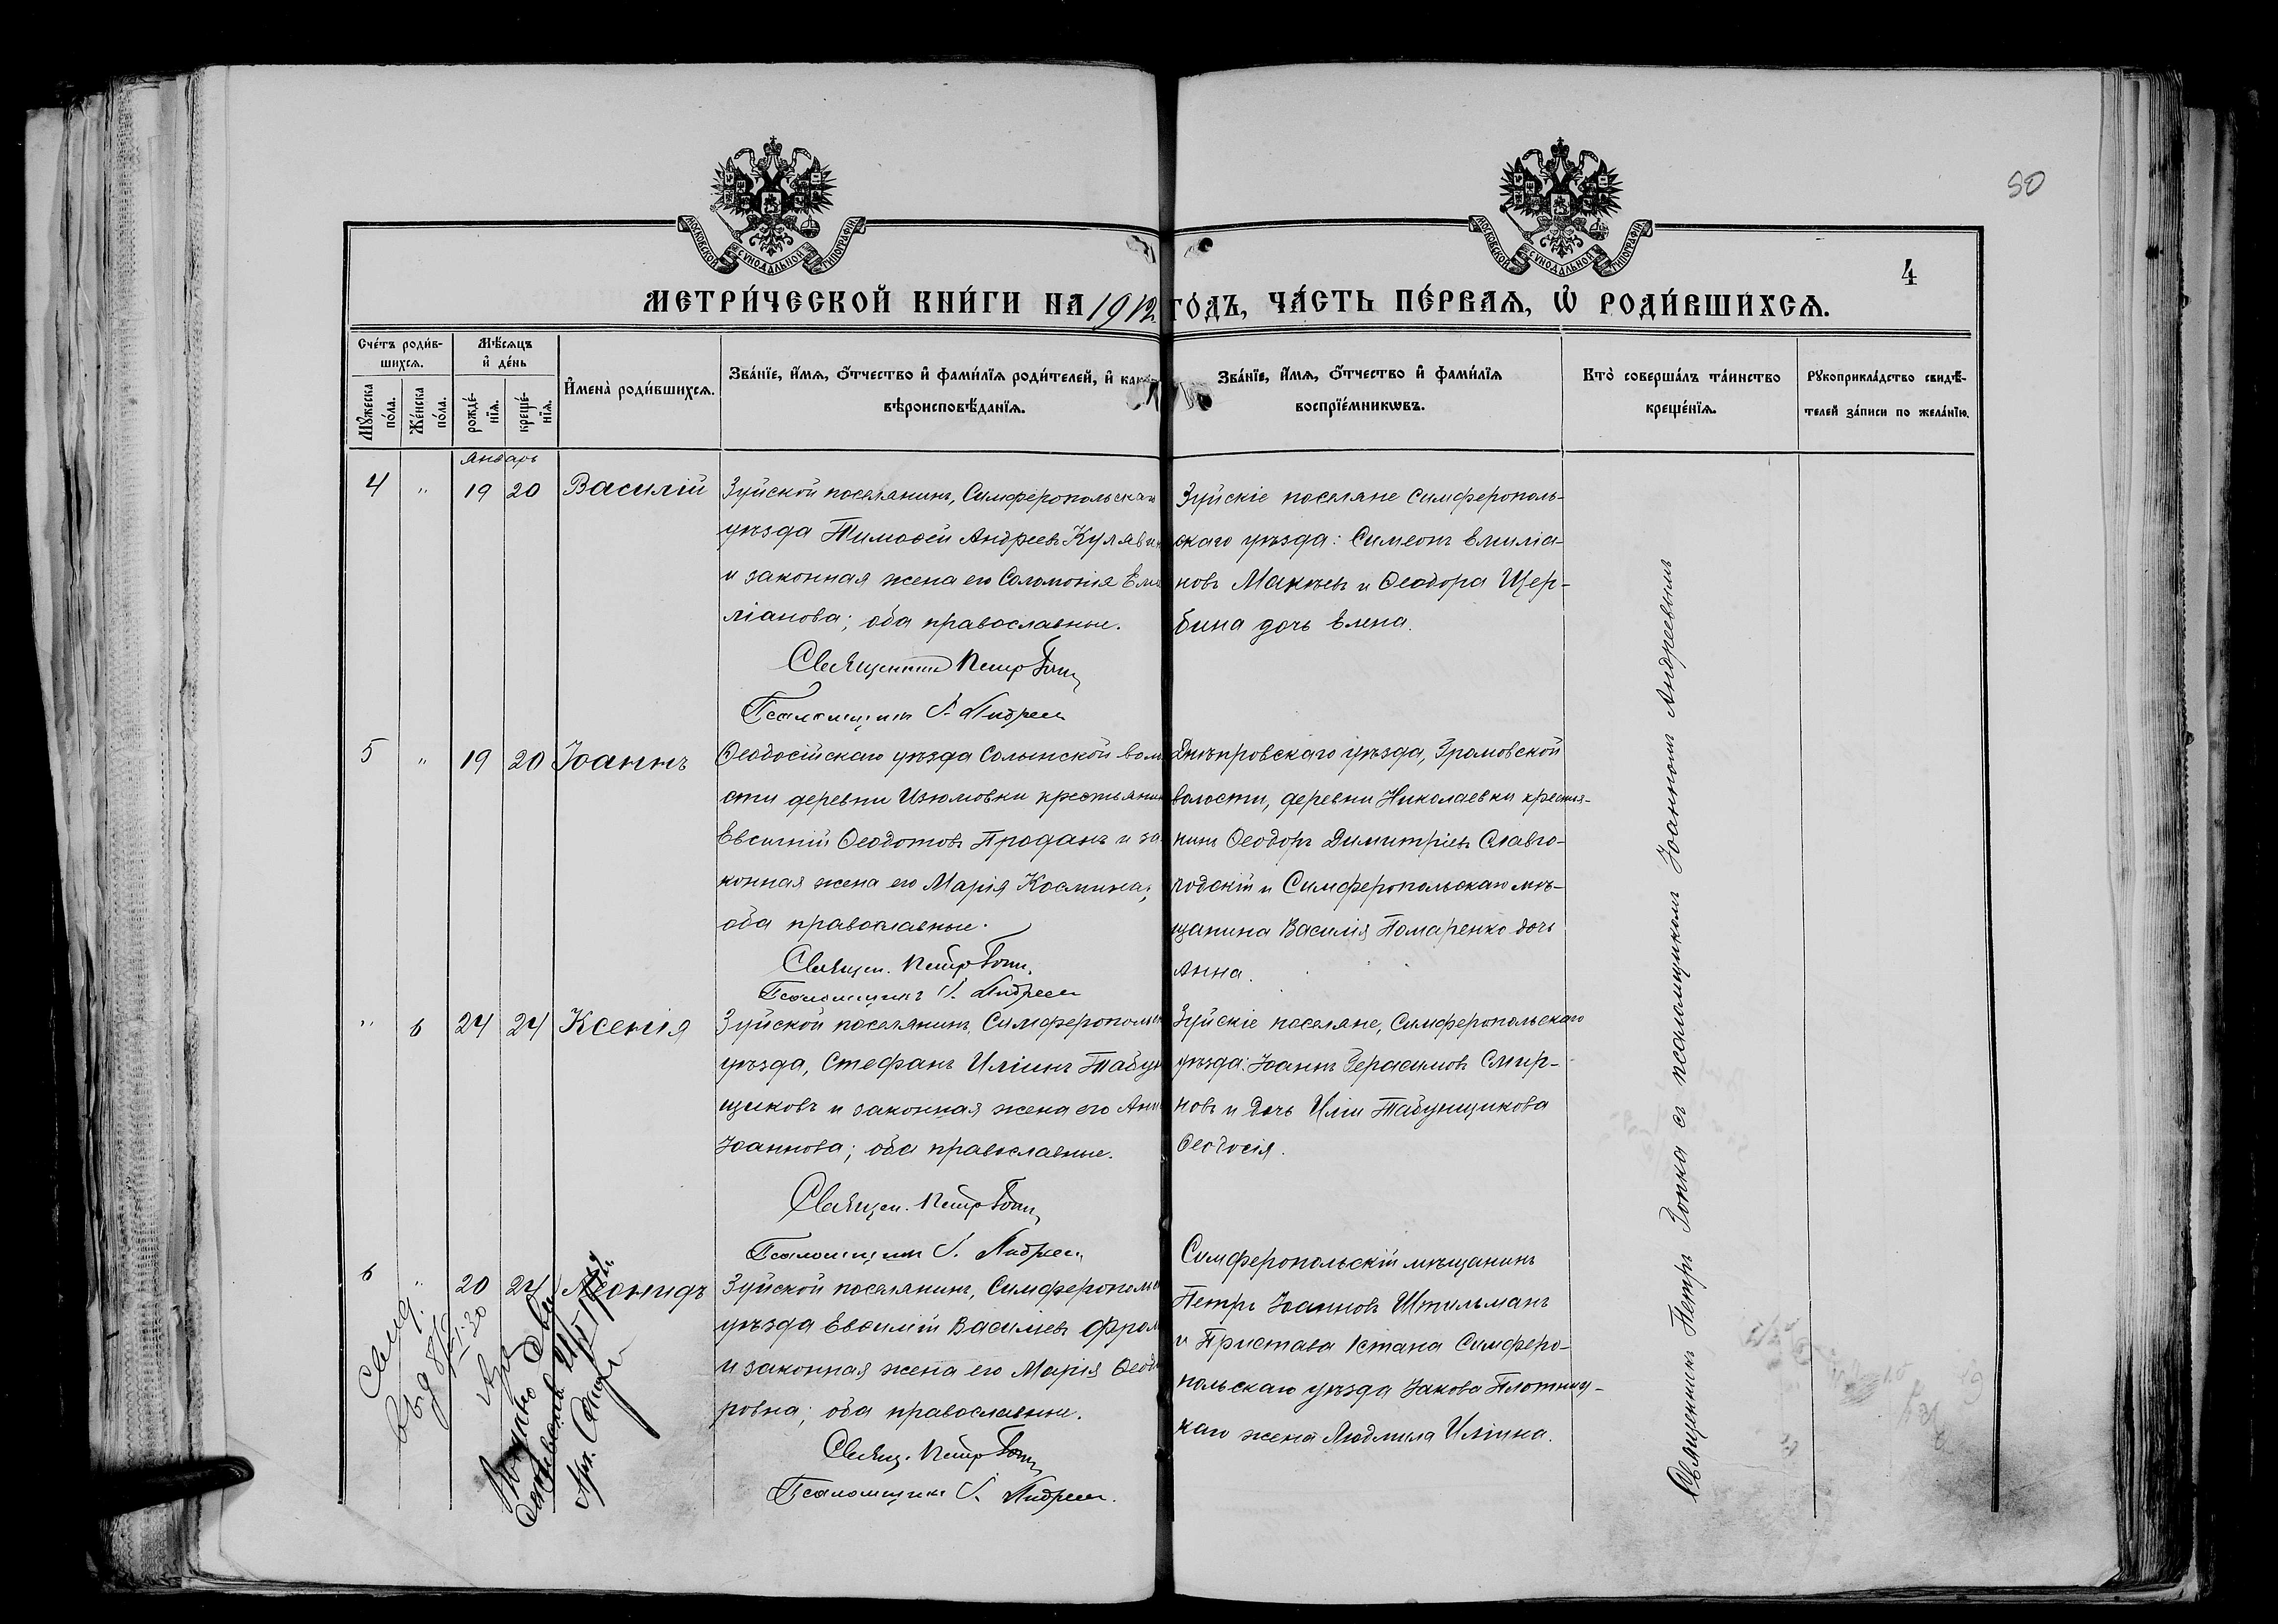 50
МОСКОВСКОЙ СѴНОДАЛЬНОЙ ТИПОГРАФІИ
МОСКОВСКОЙ СѴНОДАЛЬНОЙ ТИПОГРАФІИ
4
МЕТРИ́ЧЕСКОЙ КНИ́ГИ НА 1912 ГО́ДЪ, ЧА́СТЬ ПЕ́РВАѦ, Ѡ҆ РОДИ́ВШИХСѦ.
Сче́тъ роди́в-
шихсѧ.
Мꙋ́жеска по́ла.
Же́нска по́ла.
Мѣ́сѧцъ
и҆ де́нь
рожде́-
нїѧ.
креще́-
нїѧ.
И҆мена̀ роди́вшихсѧ.
Зва́нїе, и҆́мѧ, ѻ҆́тчество и҆ фами́лїѧ роди́телей, и҆ како́
вѣроисповѣ́данїѧ.
Зва́нїе, и҆́мѧ, ѻ҆́тчество и҆ фами́лїѧ
воспрїе́мникѡвъ.
Кто̀ соверша́лъ та́инство
креще́нїѧ.
Рꙋкоприкла́дство свидѣ́-
телей за́писи по жела́нїю.
Январь
4 " 19 20 Василій
Зуйской поселянинъ, Симферопольскаго
уѣзда Тимоѳей Андреевъ Куляви
и законная жена его Соломонія Еми
ліанова; оба православные.
Священникъ Петр
Псаломщикъ І. Андреев
Зуйскіе поселяне Симферополь-
скаго уѣзда: Симеонъ Емиліа-
новъ Макѣевъ и Ѳеодора Щер-
бина дочь Елена.
5 " 19 20 Іоаннъ
Ѳеодосійскаго уѣзда Салынской вол
сти деревни Изюмовки крестьянин
Евсигній Ѳеодотовъ Проданъ и за
конная жена его Марія Космина,
оба православные.
Священ. Петр
Псаломщикъ І. Андреев
Днѣпровскаго уѣзда, Громовской
волости, деревни Николаевки крестья-
нинъ Ѳеодоръ Димитріевъ Славго-
родскій и Симферопольскаго мѣ-
щанина Василія Помаренко дочь
Анна.
" 6 24 24 Ксенія
Зуйской поселянинъ, Симферопольск
уѣзда, Стефанъ Иліинъ Табун
щиковъ и законная жена его Анн
Іоаннова; оба православные.
Священ. Петр
Псаломщикъ І. Андреев
Зуйскіе поселяне, Симферопольскаго
уѣзда: Іоаннъ Герасимовъ Смир-
новъ и дочь Иліи Табунщикова
Ѳеодосія.
6 " 20 24 Леонидъ
Зуйской поселянинъ, Симферопольск
уѣзда Евѳимій Василіев Фрол
и законная жена его Марія Ѳеодо
ровна; оба православные.
Свящ. Петр
Псаломщикъ І. Андреев.
Симферопольскій мѣщанинъ
Петръ Іоанновъ Штильманъ
и Пристава 1 стана Симферо-
польскаго уѣзда Іакова Плотниц-
каго жена Людмила Иліина.
Священникъ Петръ съ псаломщикомъ Іоанномъ Андреевымъ